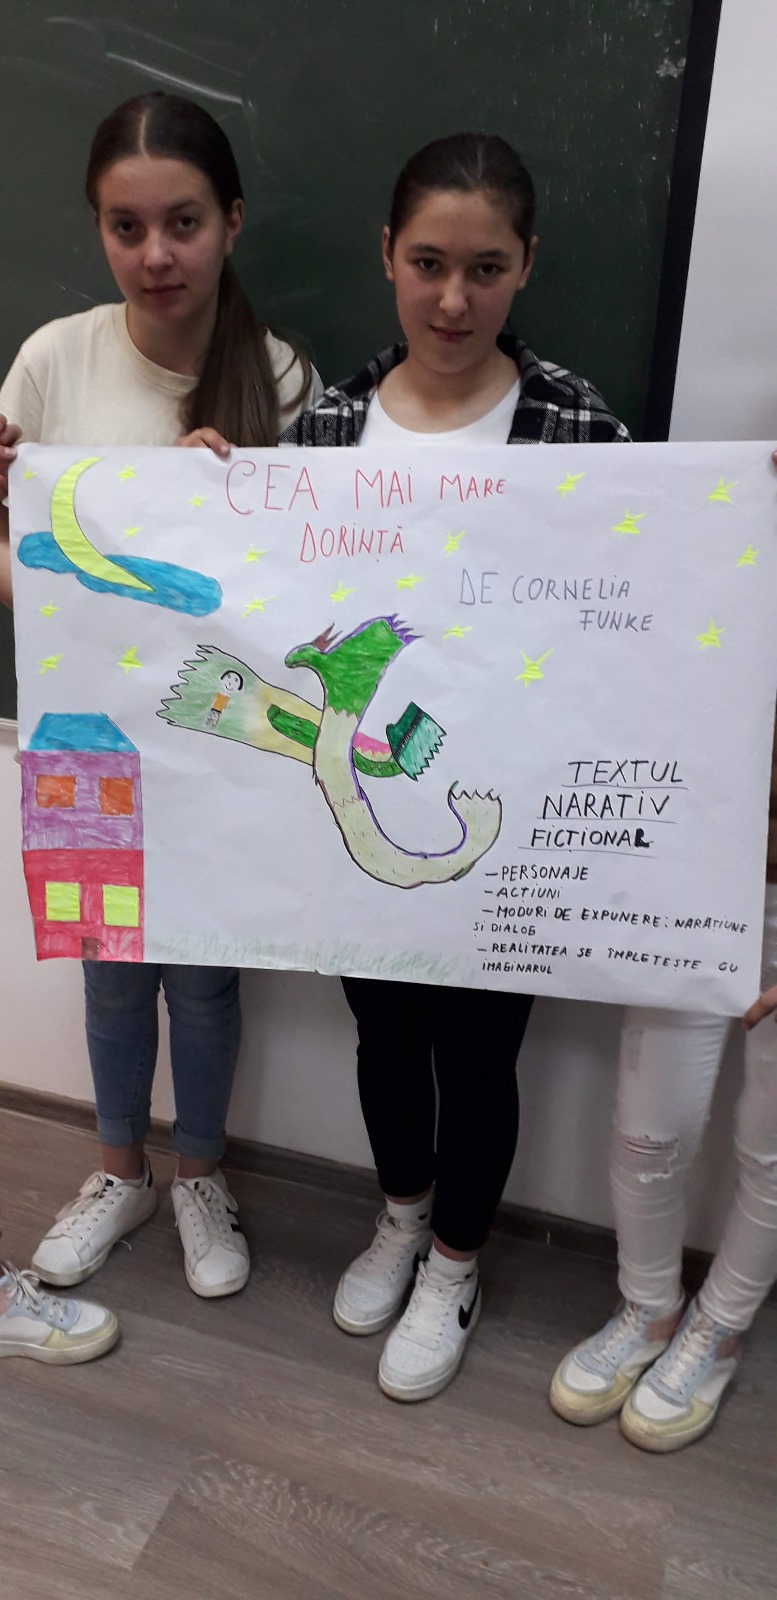 CEA MAI MARE
DORINȚĂ
DE CORNELIA
FUNKE
TEXTUL
NARATIV
FICȚIONAL
– PERSONAJE
– ACȚIUNI
– MODURI DE EXPUNERE: NARAȚIUNE
ȘI DIALOG
– REALITATEA SE ÎMPLETEȘTE CU
IMAGINARUL